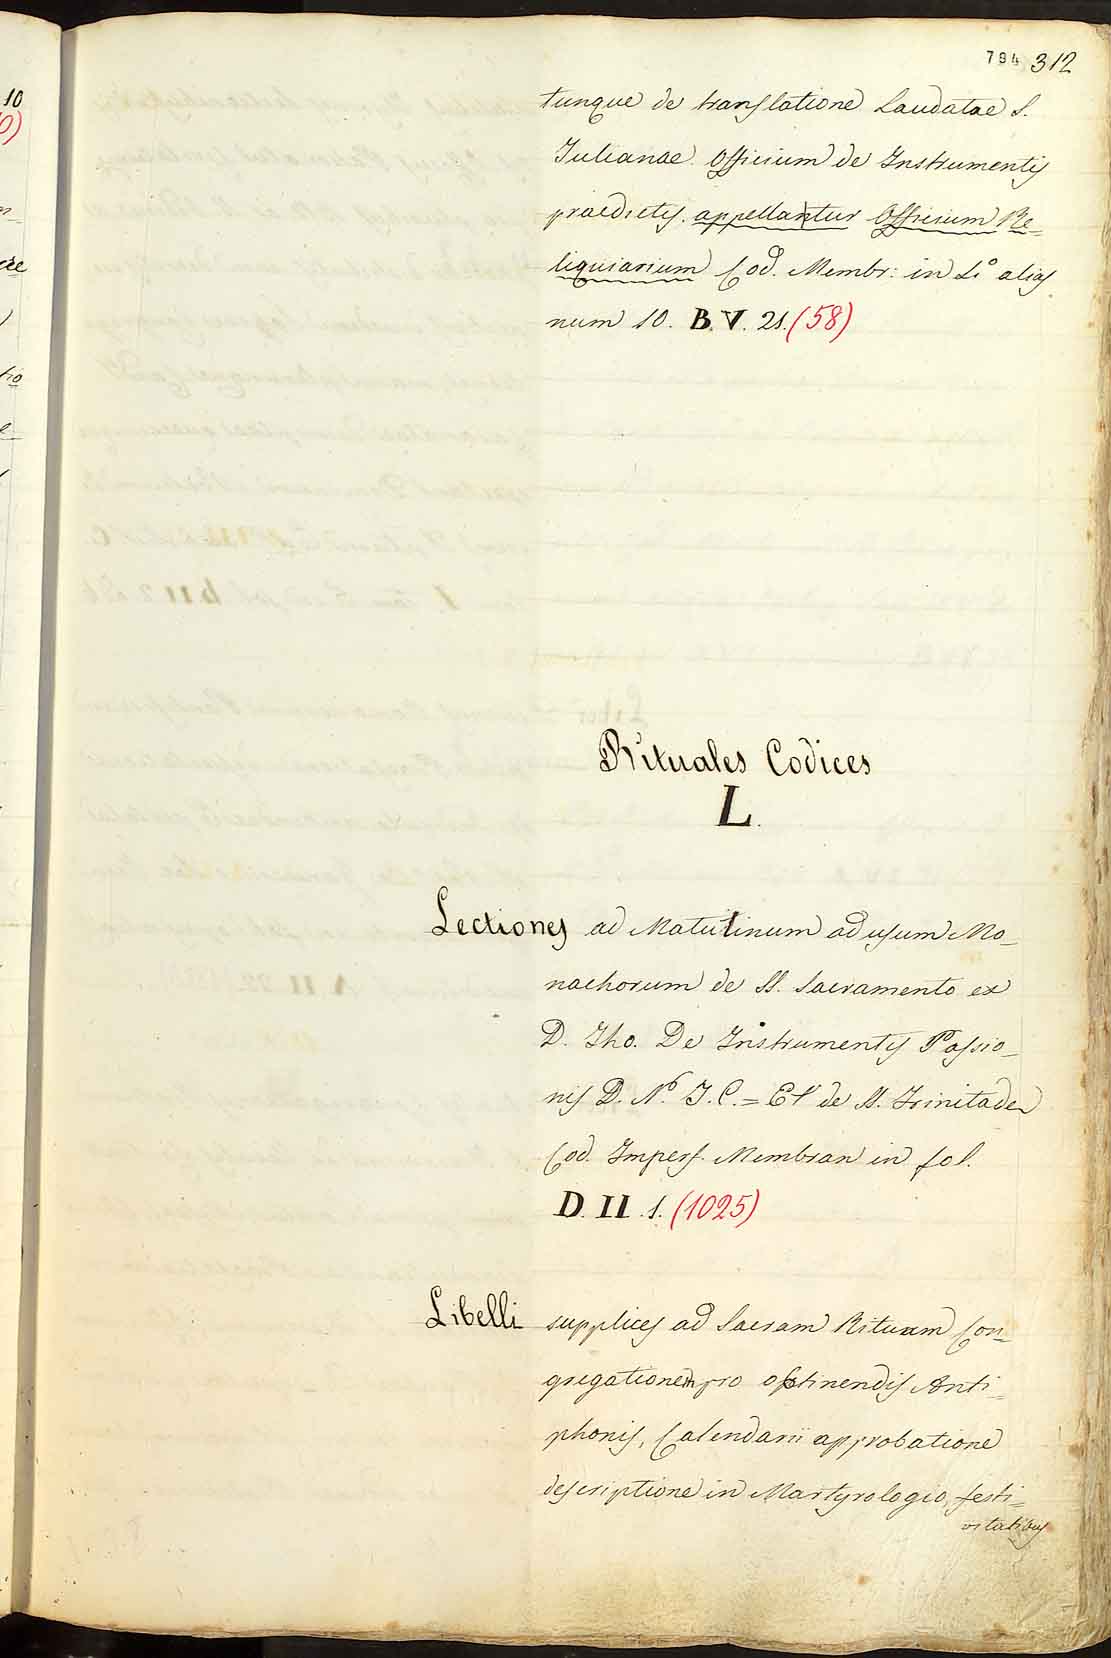 794 312
tunque de translatione Laudatae S.
Iulianae Officium de Instrumentis
praedictis. appellantur Officium Re=
liquiarium Cod. Membr: in 4º alias
num 10. B. V. 21. (58)
Rituales Codices
L.
Lectiones ad Matutinum ad usum Mo_
nachorum de SS. Sacramento ex
D. Tho. De Instrumentis Passio_
nis D. N. J. C. = Et de SS. Trinitade
Cod. Imperf. Membran in fol.
D. II. 1. (1025)
Libelli supplices ad Sacram Rituum Con=
gregationem pro obtinendis Anti=
phonis, Calendarii approbatione
descriptione in Martyrologio, festi=
vitatibus